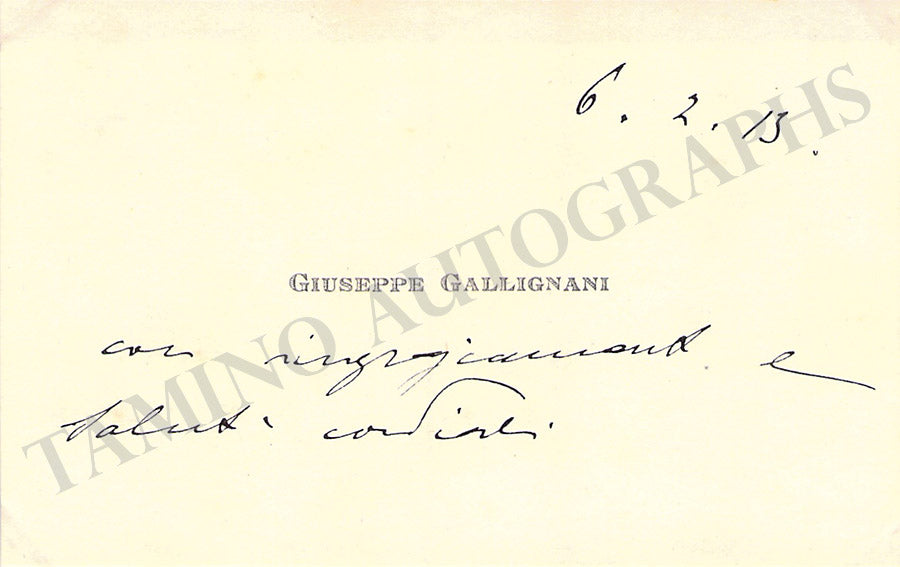 6. 2. 13.
GIUSEPPE GALLIGNANI
con ringraziamenti e
saluti cordiali.
TAMINO AUTOGRAPHS